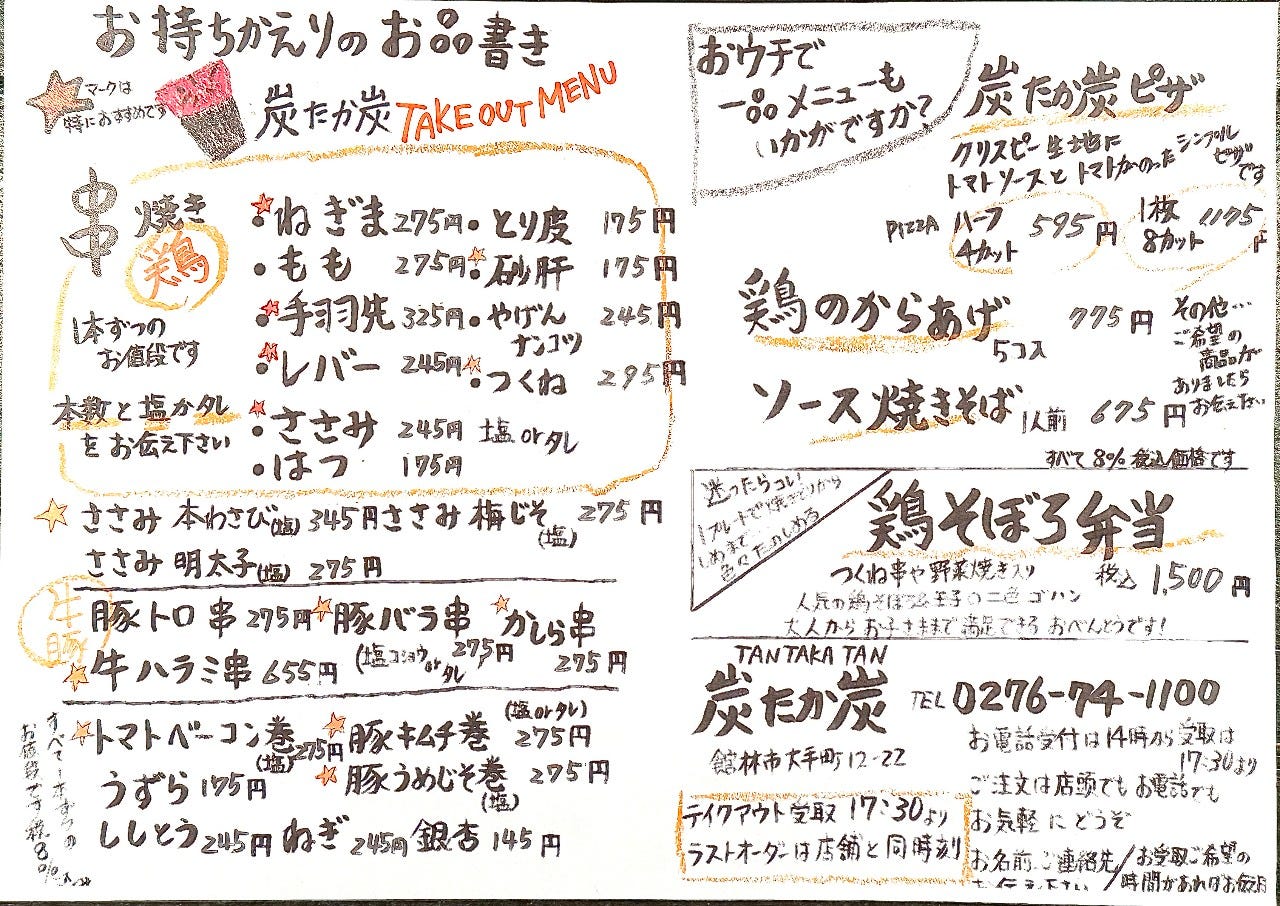 お持ちかえりのお品書き
マークは
特におすすめです
炭たか炭 TAKE OUT MENU
串焼き
鶏
1本ずつの
お値段です
本数と塩かタレ
をお伝え下さい
・ねぎま 275円
・もも 275円
・手羽先 325円
・レバー 245円
・ささみ 245円
・はつ 175円
・とり皮 175円
・砂肝 175円
・やげん 245円
ナンコツ
・つくね 295円
塩orタレ
ささみ 本わさび(塩) 345円 ささみ 梅じそ(塩) 275円
ささみ 明太子(塩) 275円
牛
豚
豚トロ串 275円 豚バラ串 275円 かしら串 275円
(塩コショウorタレ)
牛ハラミ串 655円
トマトベーコン巻(塩) 275円 豚キムチ巻 275円
(塩orタレ)
うずら 175円 豚うめじそ巻(塩) 275円
ししとう 245円 ねぎ 245円 銀杏 145円
すべて1本ずつの
お値段です 税8%
おウチで
一品メニューも
いかがですか?
炭たか炭ピザ
クリスピー生地に
トマトソースとトマトがのったシンプル
ピザ
です
PIZZA ハーフ 595円
4カット
1枚 1175円
8カット
鶏のからあげ 775円
5コ入
ソース焼きそば 1人前 675円
その他…
ご希望の
商品が
ありましたら
お伝え下さい
すべて8%税込価格です
迷ったらコレ!
1プレートで焼きとりから
〆めまで
色々たのしめる
鶏そぼろ弁当
つくね串や野菜焼き入り 税込 1,500円
人気の鶏そぼろ&玉子の二色ゴハン
大人からお子さままで満足できるおべんとうです!
TANTAKATAN
炭たか炭 TEL 0276-74-1100
館林市大手町12-22
お電話受付は14時から受取は
17:30より
ご注文は店頭でもお電話でも
お気軽にどうぞ
お名前ご連絡先/お受取ご希望の
お伝え下さい/時間があればお伝え
テイクアウト受取 17:30より
ラストオーダーは店舗と同時刻